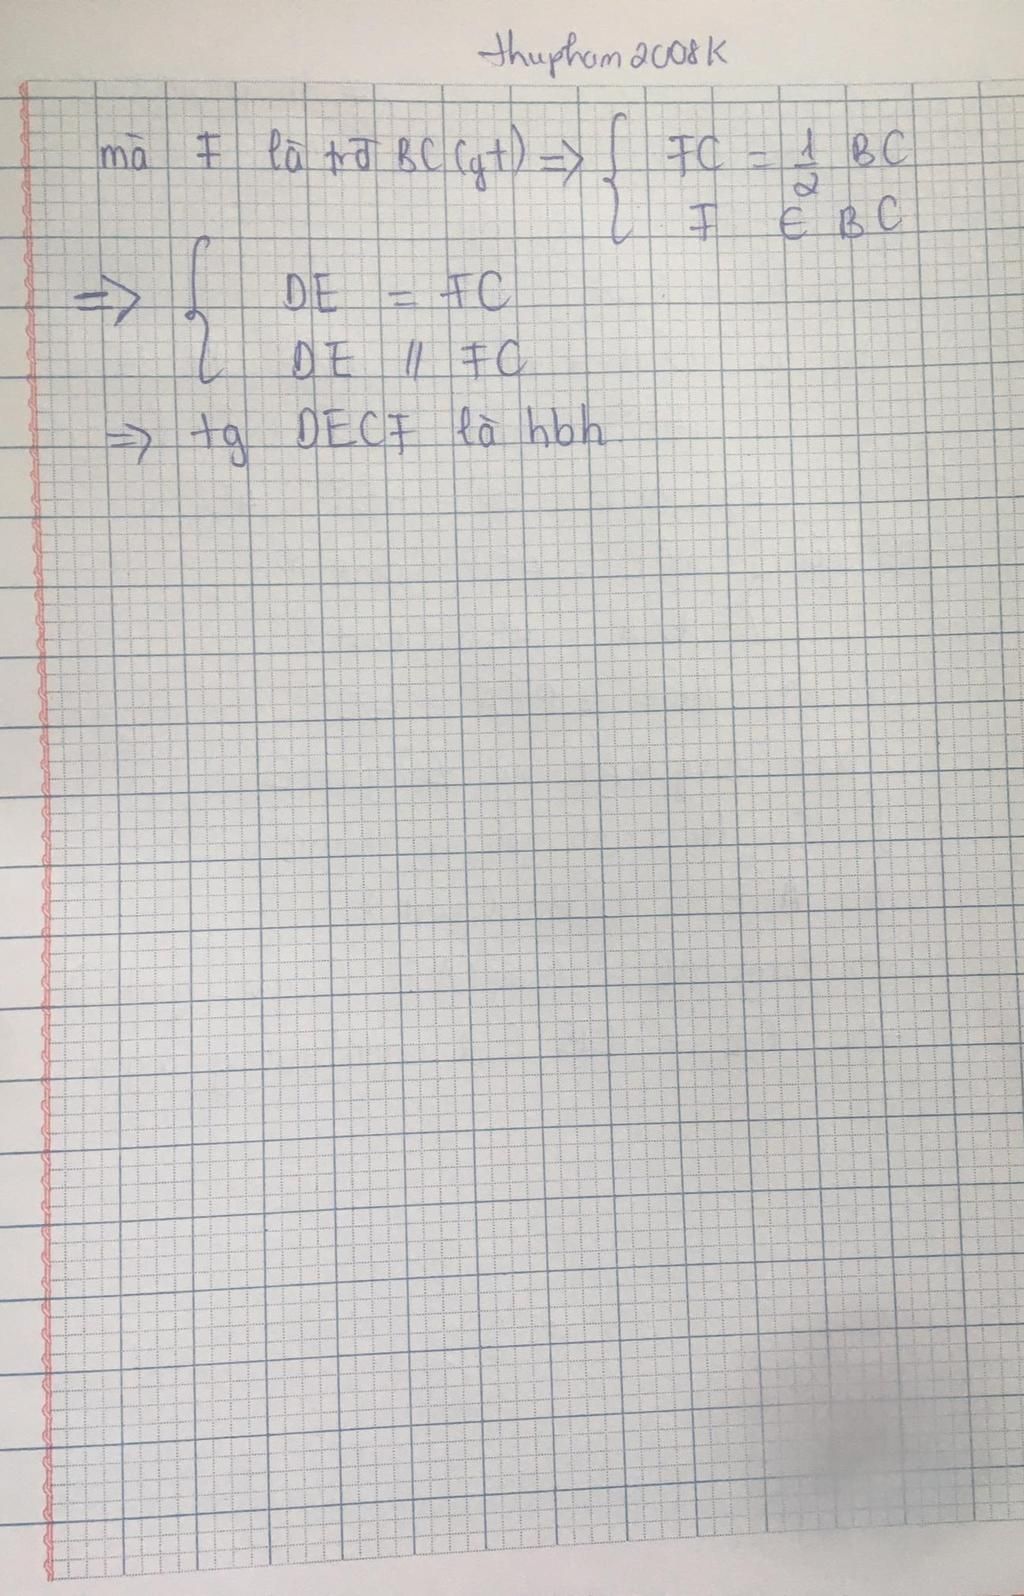 thupham2008K
mà F là trđ BC (gt) => { FC = 1/2 BC
F ∈ BC
=> { DE = FC
DE // FC
=> tg DECF là hbh